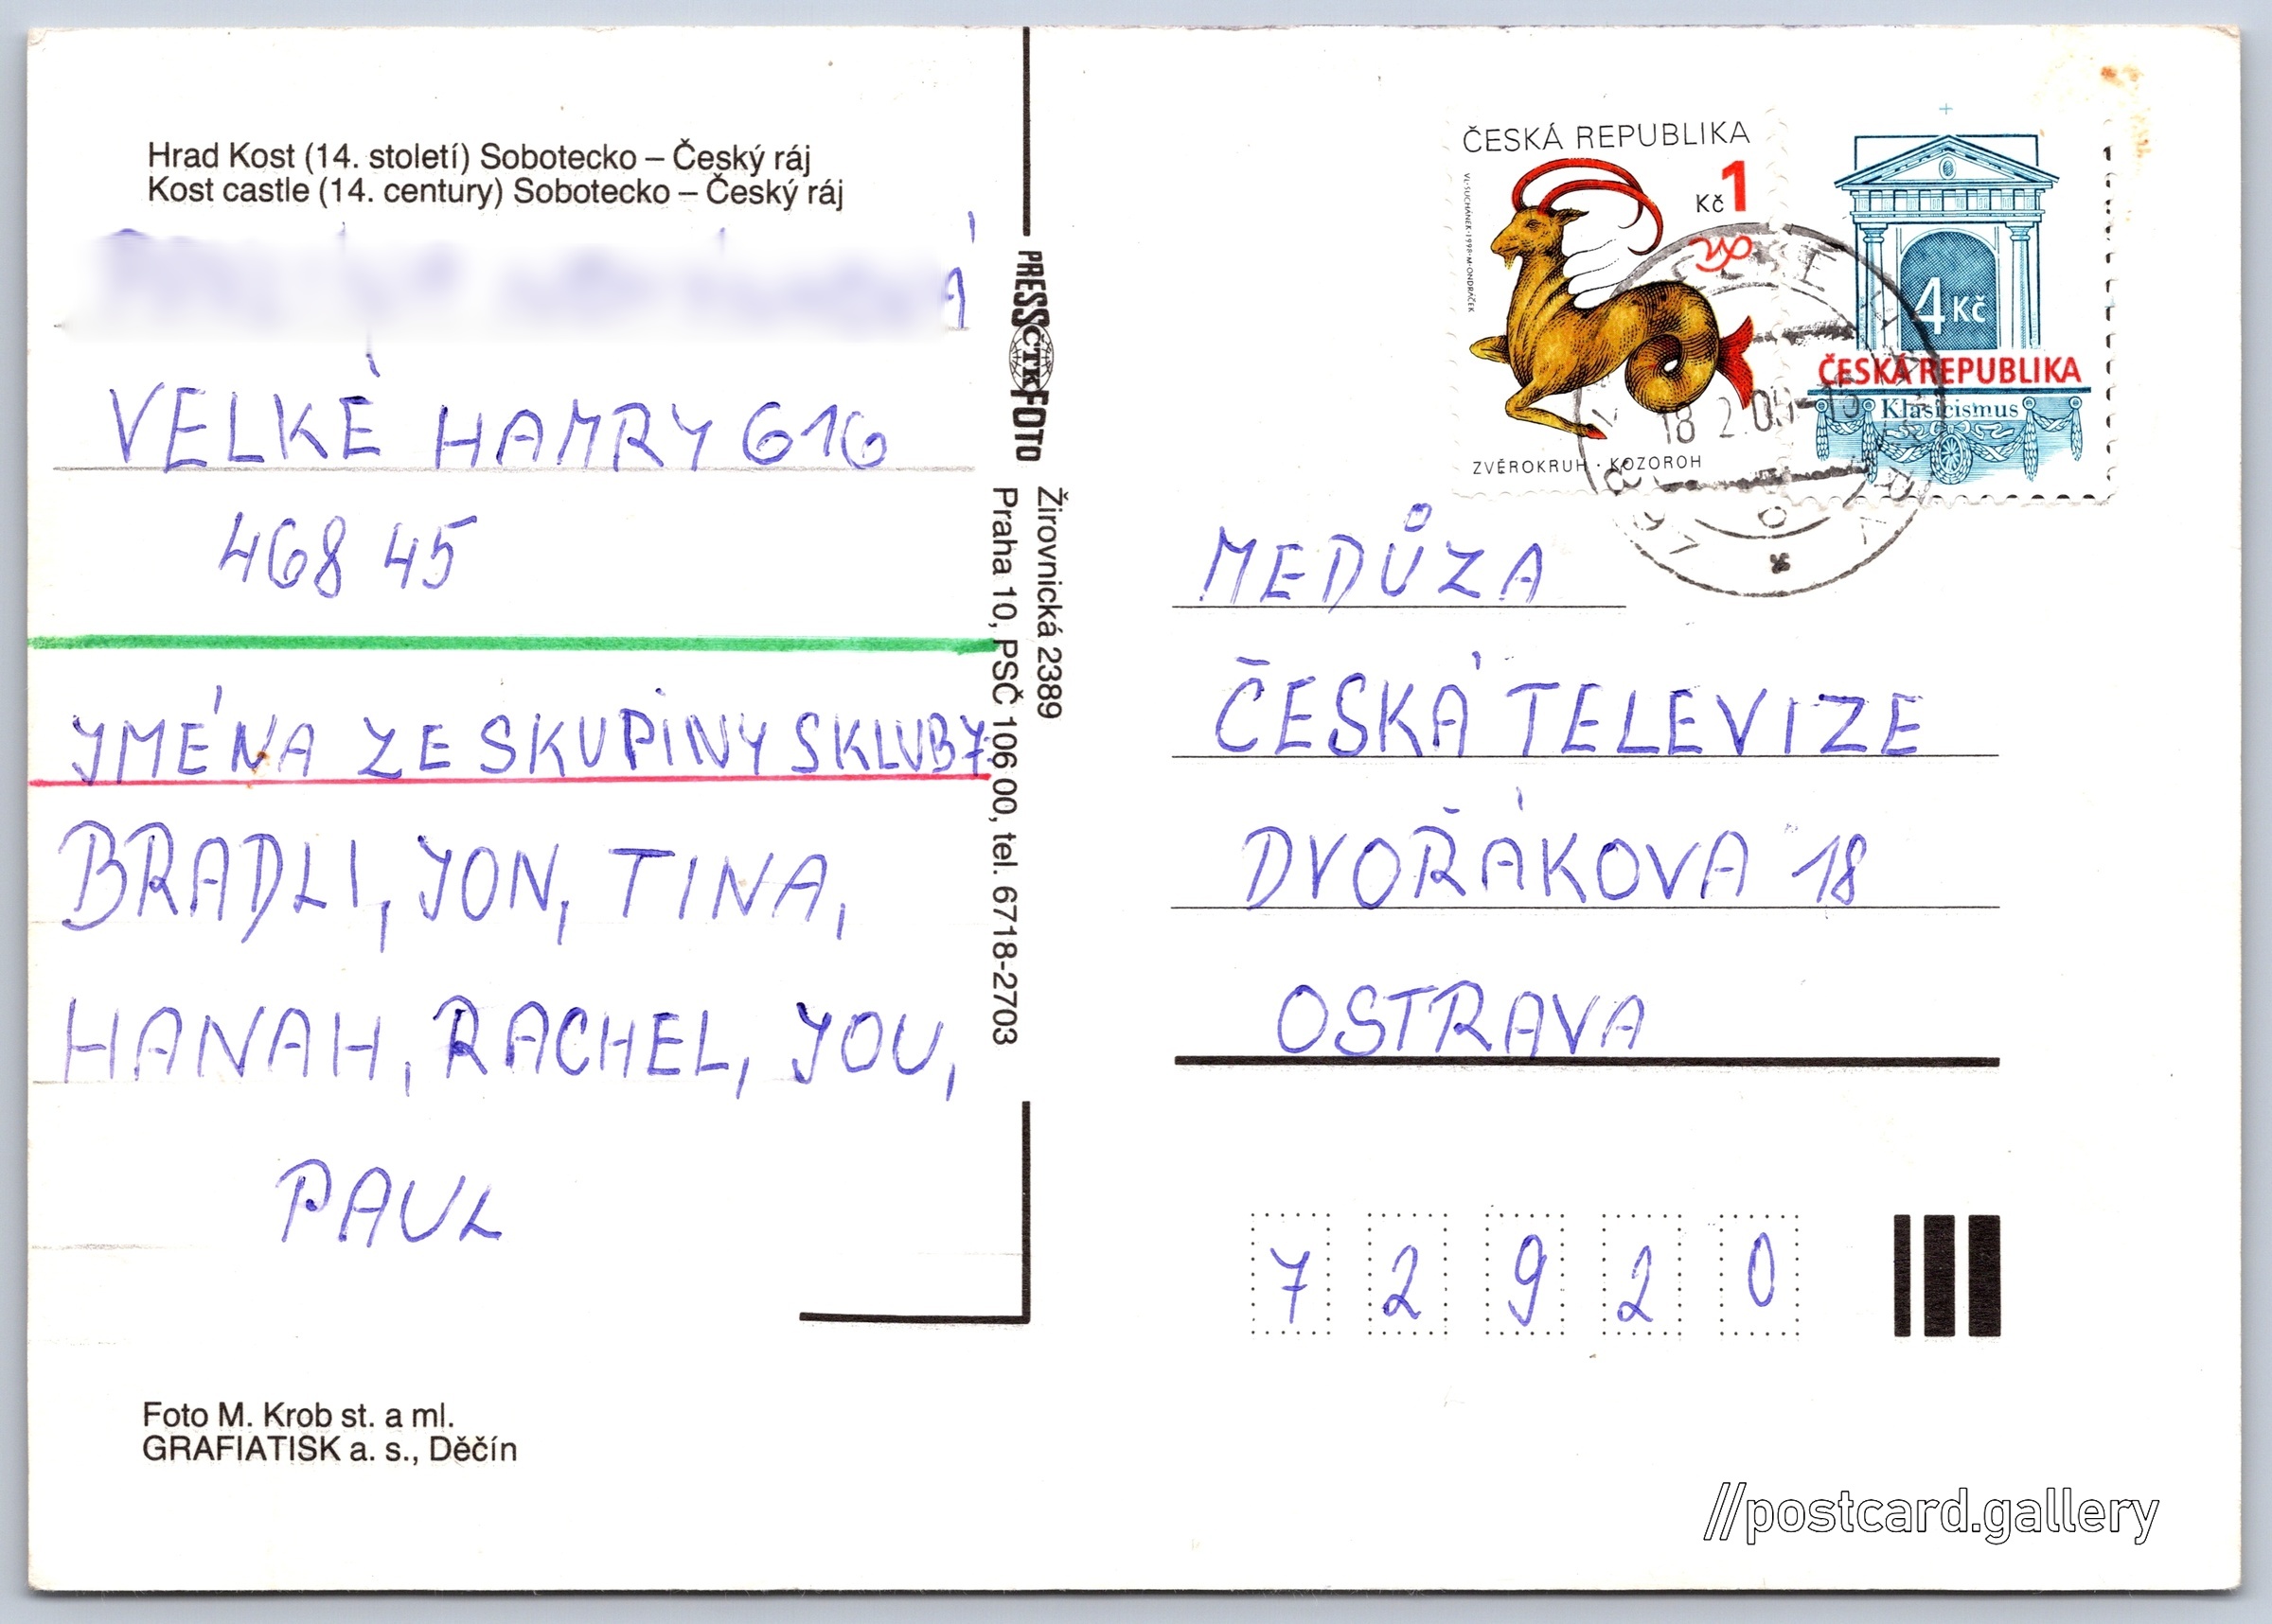 Hrad Kost (14. století) Sobotecko – Český ráj
Kost castle (14. century) Sobotecko – Český ráj
VELKÉ HAMRY 616
468 45
JMÉNA ZE SKUPINY SKLUB7:
BRADLI, JON, TINA,
HANAH, RACHEL, JOU,
PAUL
Foto M. Krob st. a ml.
GRAFIATISK a. s., Děčín
PRESS ČTK FOTO
Žirovnická 2389
Praha 10, PSČ 106 00, tel. 6718-2703
ČESKÁ REPUBLIKA
Kč 1
ZVĚROKRUH · KOZOROH
4 Kč
ČESKÁ REPUBLIKA
Klasicismus
18 2.
MEDŮZA
ČESKÁ TELEVIZE
DVOŘÁKOVA 18
OSTRAVA
7 2 9 2 0
//postcard.gallery